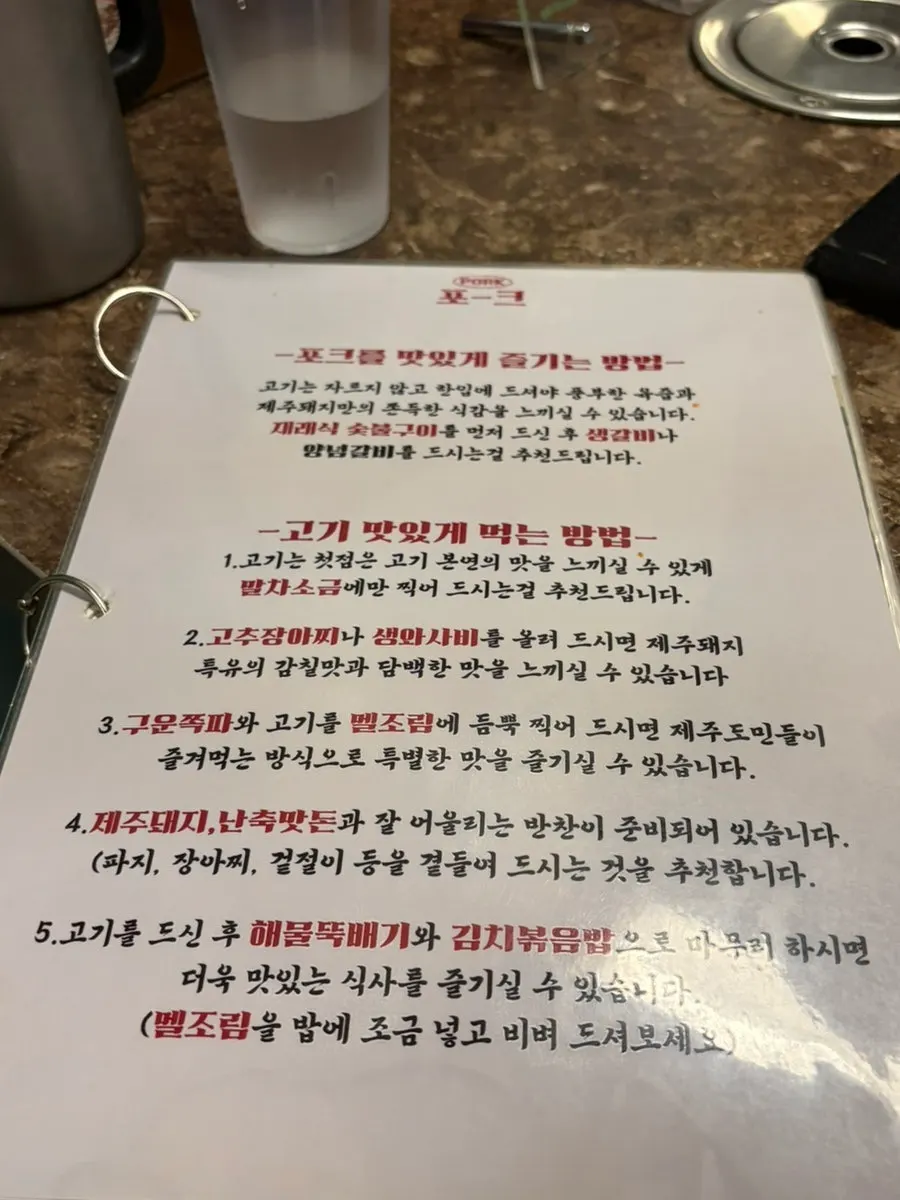 PORK
포-크
-포크를 맛있게 즐기는 방법-
고기는 자르지 않고 한입에 드셔야 풍부한 육즙과
제주돼지만의 쫀득한 식감을 느끼실 수 있습니다.
재래식 숯불구이를 먼저 드신 후 생갈비나
양념갈비를 드시는걸 추천드립니다.
-고기 맛있게 먹는 방법-
1.고기는 첫점은 고기 본연의 맛을 느끼실 수 있게
말차소금에만 찍어 드시는걸 추천드립니다.
2.고추장아찌나 생와사비를 올려 드시면 제주돼지
특유의 감칠맛과 담백한 맛을 느끼실 수 있습니다
3.구운쪽파와 고기를 멜조림에 듬뿍 찍어 드시면 제주도민들이
즐겨먹는 방식으로 특별한 맛을 즐기실 수 있습니다.
4.제주돼지,난축맛돈과 잘 어울리는 반찬이 준비되어 있습니다.
(파지, 장아찌, 겉절이 등을 곁들여 드시는 것을 추천합니다.
5.고기를 드신 후 해물뚝배기와 김치볶음밥으로 마무리 하시면
더욱 맛있는 식사를 즐기실 수 있습니다.
(멜조림을 밥에 조금 넣고 비벼 드셔보세요)